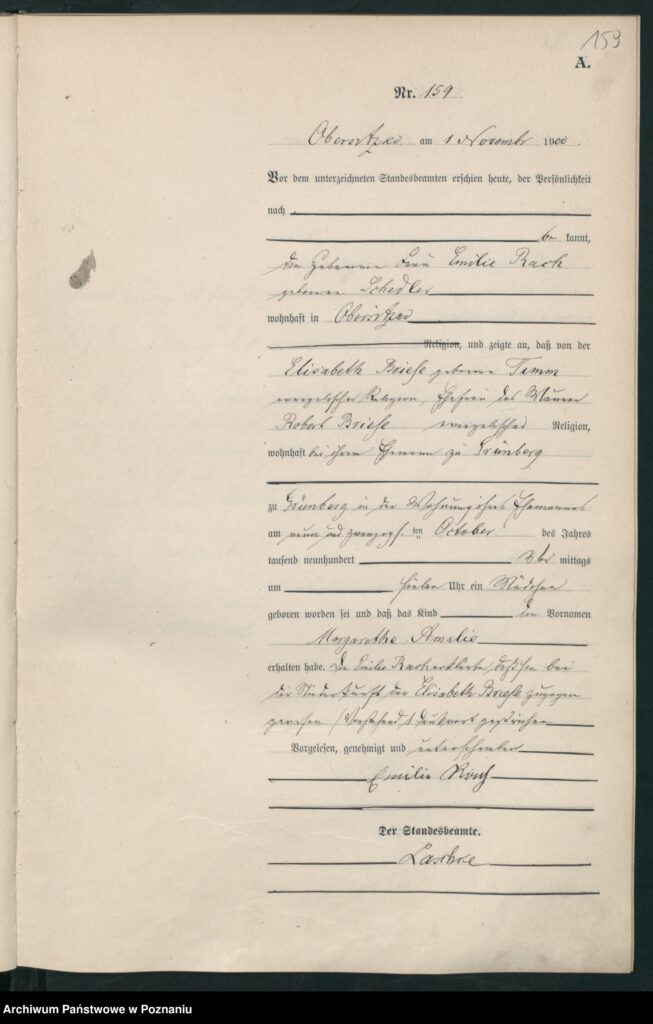 159
A.
Nr. 159
Obersitzko am 1 Novembr 1900.
Vor dem unterzeichneten Standesbeamten erschien heute, der Persönlichkeit
nach
be kannt,
die Hebamme Frau Emilie Rach
geborene Schedler
wohnhaft in Obersitzko
Religion, und zeigte an, daß von der
Elisabeth Briese geborene Timm
evangelischer Religion, Ehefrau des Maurers
Robert Briese evangelischer Religion,
wohnhaft bei ihrem Ehemann zu Grünberg
zu Grünberg in der Wohnung ihres Ehemannes
am neun und zwanzigsten October des Jahres
tausend neunhundert Vor mittags
um sieben Uhr ein Mädchen
geboren worden sei und daß das Kind die Vornamen
Margarethe Amalie
erhalten habe. Die Emilie Rach erklärte, daß sie bei
der Niederkunft der Elisabeth Briese zugegen
gewesen (Vorstehend 1 Druckwort gestrichen
Vorgelesen, genehmigt und unterschrieben
Emilie Rach
Der Standesbeamte.
Archiwum Państwowe w Poznaniu